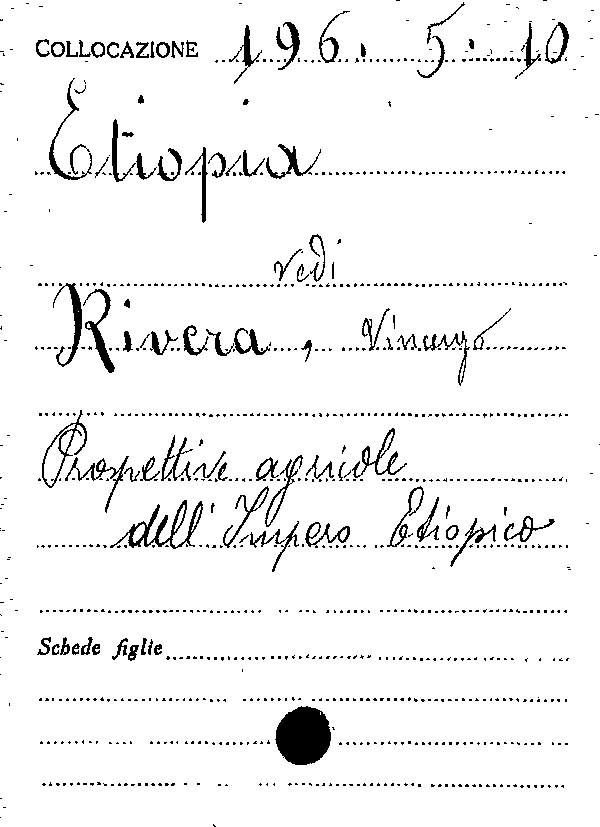 COLLOCAZIONE 196. 5. 10
Etiopia
vedi
Rivera, Vincenzo
Prospettive agricole
dell'Impero Etiopico
Schede figlie